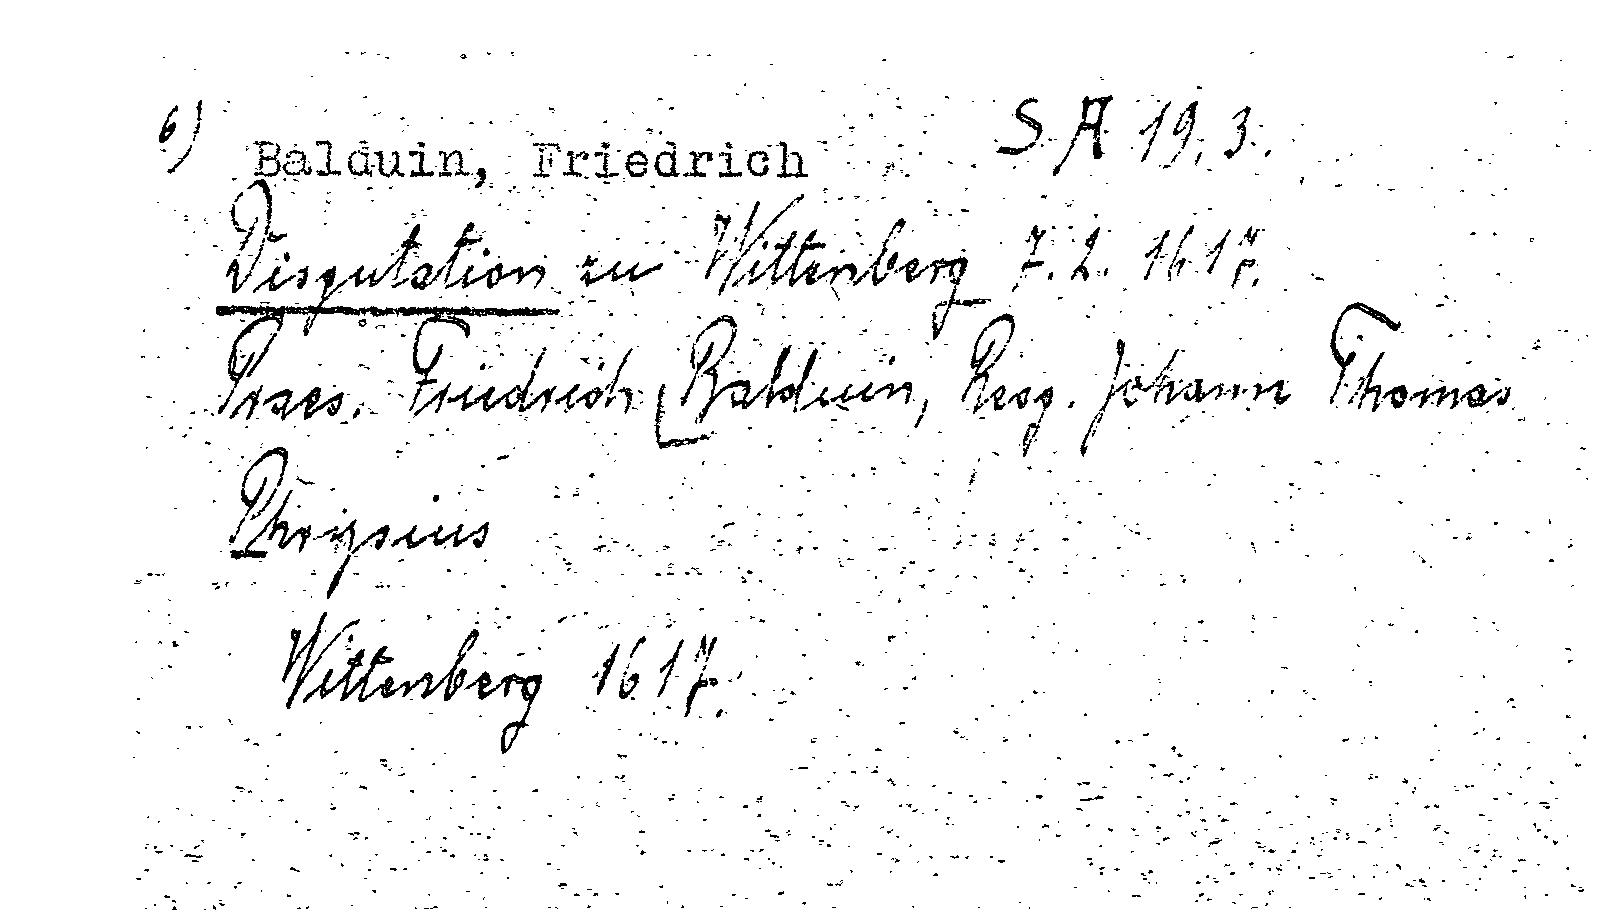 6) Balduin, Friedrich S A 19, 3.
Disputation zu Wittenberg 7. 2. 1617.
Praes. Friedrich Balduin, Resp. Johann Thomas
Phrysius
Wittenberg 1617.